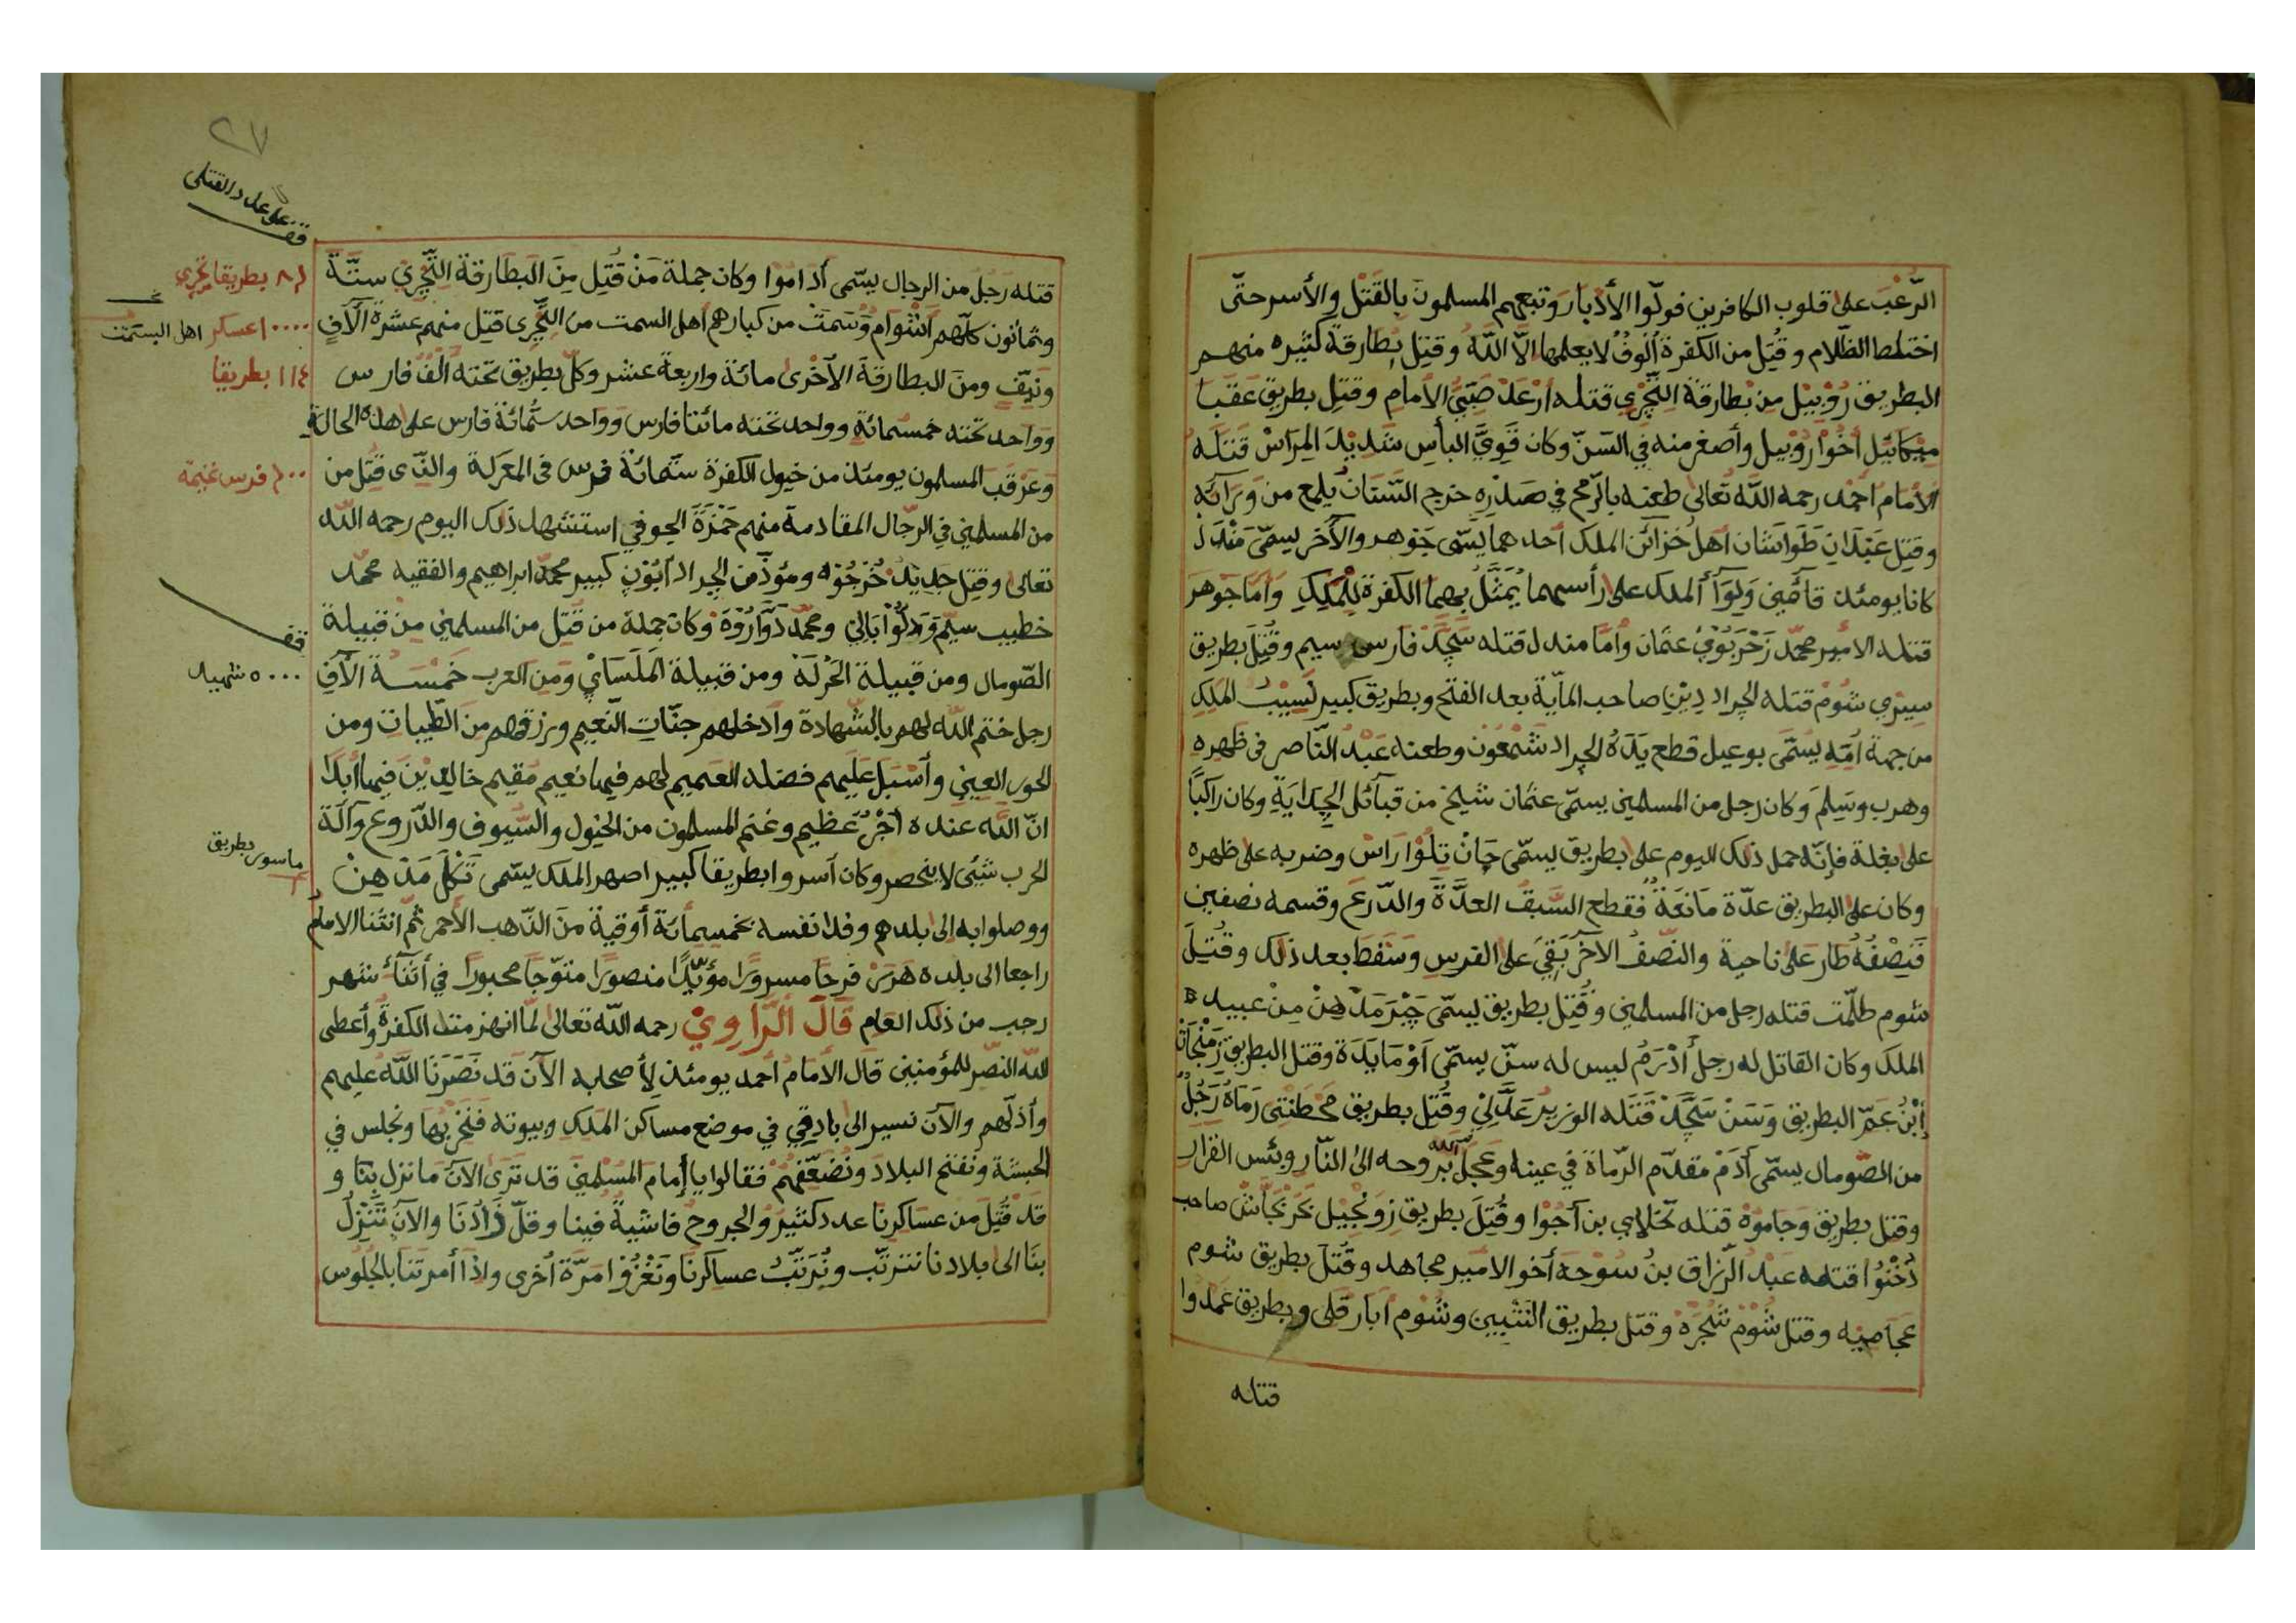 الرّعْبَ على قلوب الكافرين فولّوا الأدْبار وتبعهم المسلمون بالقَتْل والأسر حتّى
اختلط الظّلام وقُتِل من الكفرة أُلوفٌ لا يعلمها الّا اللّه وقتِل بطارقة كثيره منهم
البطريق رُوْبِيْل مِن بطارقة التِّجْرِي قتله أرْعَدْ صَبِيُّ الأمامِ وقتِل بطريق عَقَبا
مِيْكائِيْل أخُوْا رُوْبيل وأصغر منه في السّنّ وكان قَوِيَّ البأسِ شَدِيْدَ المِرَاسْ قَتَلَه
الأمام أحمْد رحمه اللّه تعالى طعنه بالرّمح في صَدْرِه خرج السّنانُ يلمع من وَرَائه
وقتِل عَبْدانِ طَواشان أهل خزائن الملك أحدهما يسَمّى جَوْهر والآخر يسمّى مَنْدَلْ
كانا يومئذ قآضِين وَلِوَآ ألملك على رأسهما يُمَثَّلُ بهما الكفرة لِلْمَلِكِ وأمّا جوهرَ
قتله الامير محمّد زَحْرَبُوْيْ عثمان وأمّا مندل قتله سَجَّدْ فارس سيم وقُتِلَ بطريق
سِيبْري شُوْمْ قتله الجراد دِيْنِ صاحب المآية بعد الفتح وبطريق كبير نَسِيْبُ المَلِكِ
من جهة أمّه يُسمّى بوعيل قطع يَدَهُ الجراد شَمْعُون وطعنه عَبْدُ النّاصر في ظهره
وهرب وسَلِمَ وكان رجل من المسلمين يسمّى عثمان شيخ من قبآئل الجِدَايَةِ وكان راكبًا
على بغلة فإنّه حمل ذلك اليوم على بطريق يسمّى جَانْ تِلُوْا رَاسْ وضربه على ظهره
وكان على البطريق عدّة مَانَعَةٌ فقطع السَّيفُ العدَّةَ والدّرعَ وقسمه نصفين
فَنِصْفُهُ طار على ناحية والنّصفُ الآخر بَقِيَ على الفرسِ وسَقَطَ بعد ذلك وقُتِلَ
شوم طلّمت قتله رجل من المسلمين وقُتِل بطريق يسمّى جَبْرَ مَدْ هِنْ مِنْ عبيد
الملك وكان القاتل له رجلٌ أدْرَمُ ليس له سنّ يسمّى أوْ مَايَدَة وقتل البطريق
إبْنُ عَمِّ البطريق وَسَنْ سَجَّدْ قَتَلَه الوزير عَدَّلي وقُتِل بطريق مَحْطَنْتِي رَمَاهُ رَجُلٌ
من الصّومال يسمّى آدَمْ مقدّم الرّماة في عينه وعَجّلَ اللّه بروحه الى النّار وبئس القرار
وقتل بطريق وَجَامُوْه قتله نَحْلابي بن آجُوْا وقُتِلَ بطريق زَوْنجِيْل صاحب
دُخْنُوْا قتله عَبْدُ الرّزاق بنُ سُوْحَه أخو الأمير مجاهد وقُتِلَ بطريق شوم
عَجَاميْه وقتل شُوْمْ شَجْرَهْ وقتل بطريق وشُوْم أبارقلى وبطريق عَمَدُوا
قتله
٢٧
قف على عدد القتلى
قتله رَجُل من الرجال يسَمّى أدَامُوا وكان جملة مَنْ قُتِل مِنَ البَطَارقَة التِّجْرِيْ ستّة
وثمانون كلّهم من كبارهم أهل السمت من التِّجْرِي قتِل منهم عشرة آلآف
ونَيِّفٍ ومنَ البطارقة الآخْرى مائة واربعة عشر وكلّ بطريق تحته ألْف فارس
وواحد تحته خمسمائة وواحد تحته مائتا فارس وواحد ستّمائة فارس على هذه الحالة
وعَرْقب المسلمون يومئذ من خيول الكفرة ستّمائة فرس في المعركة والذّي قُتِل من
من المسلمين في الرّجال المقادمة منهم حَمْزَة الجوفي استشهد ذلك اليوم رحمه اللّه
تعالى وقتِل جديد خُرْجُوْه ومؤذّن الجراد آبُوْنِ كبير محمّد ابراهيم والفقيه محمّد
خطيب سيم وَدَلُوْا بَالي ومحمّد دَوّارُوْة وكان جملة من قتِل من المسلمين من قبيلة
الصّومال ومن قبيلة الحَرْلَة ومن قبيلة المَلَسَاىْ ومن العرب خمسة آلآفِ
رجل ختم اللّه لهم بالشّهادة وأدخلهم جنّات النّعيم ورزقهم من الطّيبات ومن
الحور العين وأسْبَل عليهم فضله العميم لهم فيها نعيم مُقيم خالدِيْنَ فيها أبدًا
انّ اللّه عنده أجْرٌ عظيم وغنم المسلمون من الخيول والسُّيوف والدّروع وآلة
الحرب شَيْئ لا ينحصر وكان آسروا بطريقا كبيرا صهر الملك يسمّى تَكْلَ مَدْ هِنْ
ووصلوا به الى بلدهم وفدا نفسه بخمسمائة أوقيّة مِنَ الذّهب الأحمر ثمّ انثنا الامام
راجعا الى بلده هَرَرْ فرحا مسرورًا مؤيّدًا منصورًا متوّجا محبورا في أثنآء شهر
رجب من ذلك العام قَالَ الرَّاوِيْ رحمه اللّه تعالى لمّا انهزمت الكفرة وأعطى
اللّه النّصر للمؤمنين قال الأمامُ أحمد يومئذ لأصحابه الآن قد نَصَرَنا اللّه عليهم
وأذلّهم والآن نسير الى بادقي في موضع مساكن المَلِكِ وبيوته فَنَخْرِبُهَا ونجلس في
الحبشَة ونفتح البلادَ ونُضَعِّفهُمْ فقالوا يا إمام المسلمين قد تَرَى الآن مَا نزل بِنَا و
قَدْ قُتِلَ من عساكرنا عدد كثير والجروح فاشية فينا وقلّ زَادُنَا والآن تَنْزِلُ
بنَا الى بلادنا نترتّب ونُرتّب عساكرنا ونَغْزُوْا مرّة أخرى واذا أمرتنا بالجُلُوس
٨٦ بطريقا تِجْري
١٠٠٠٠ عسكر اهل السمت
١١٤ بطريقا
٦٠٠ فرس غنيمه
قف
٥٠٠٠ شهيد
ماسور بطريق